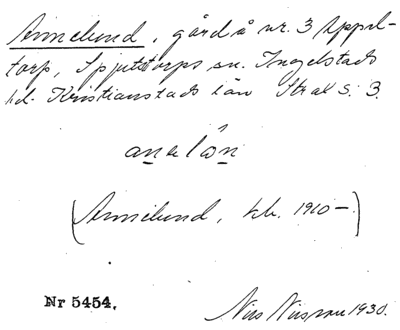 Annelund, gård å nr. 3 Äppel-
torp, Spjutstorps sn. Ingelstads
hd. Kristianstads län Skak S. 3.
anəlön
(Annelund, kb. 1910–)
Nr 5454.
Nils Nilsson 1930.